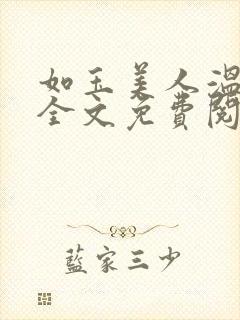 如玉美人温
全文免費閱
藍家三少